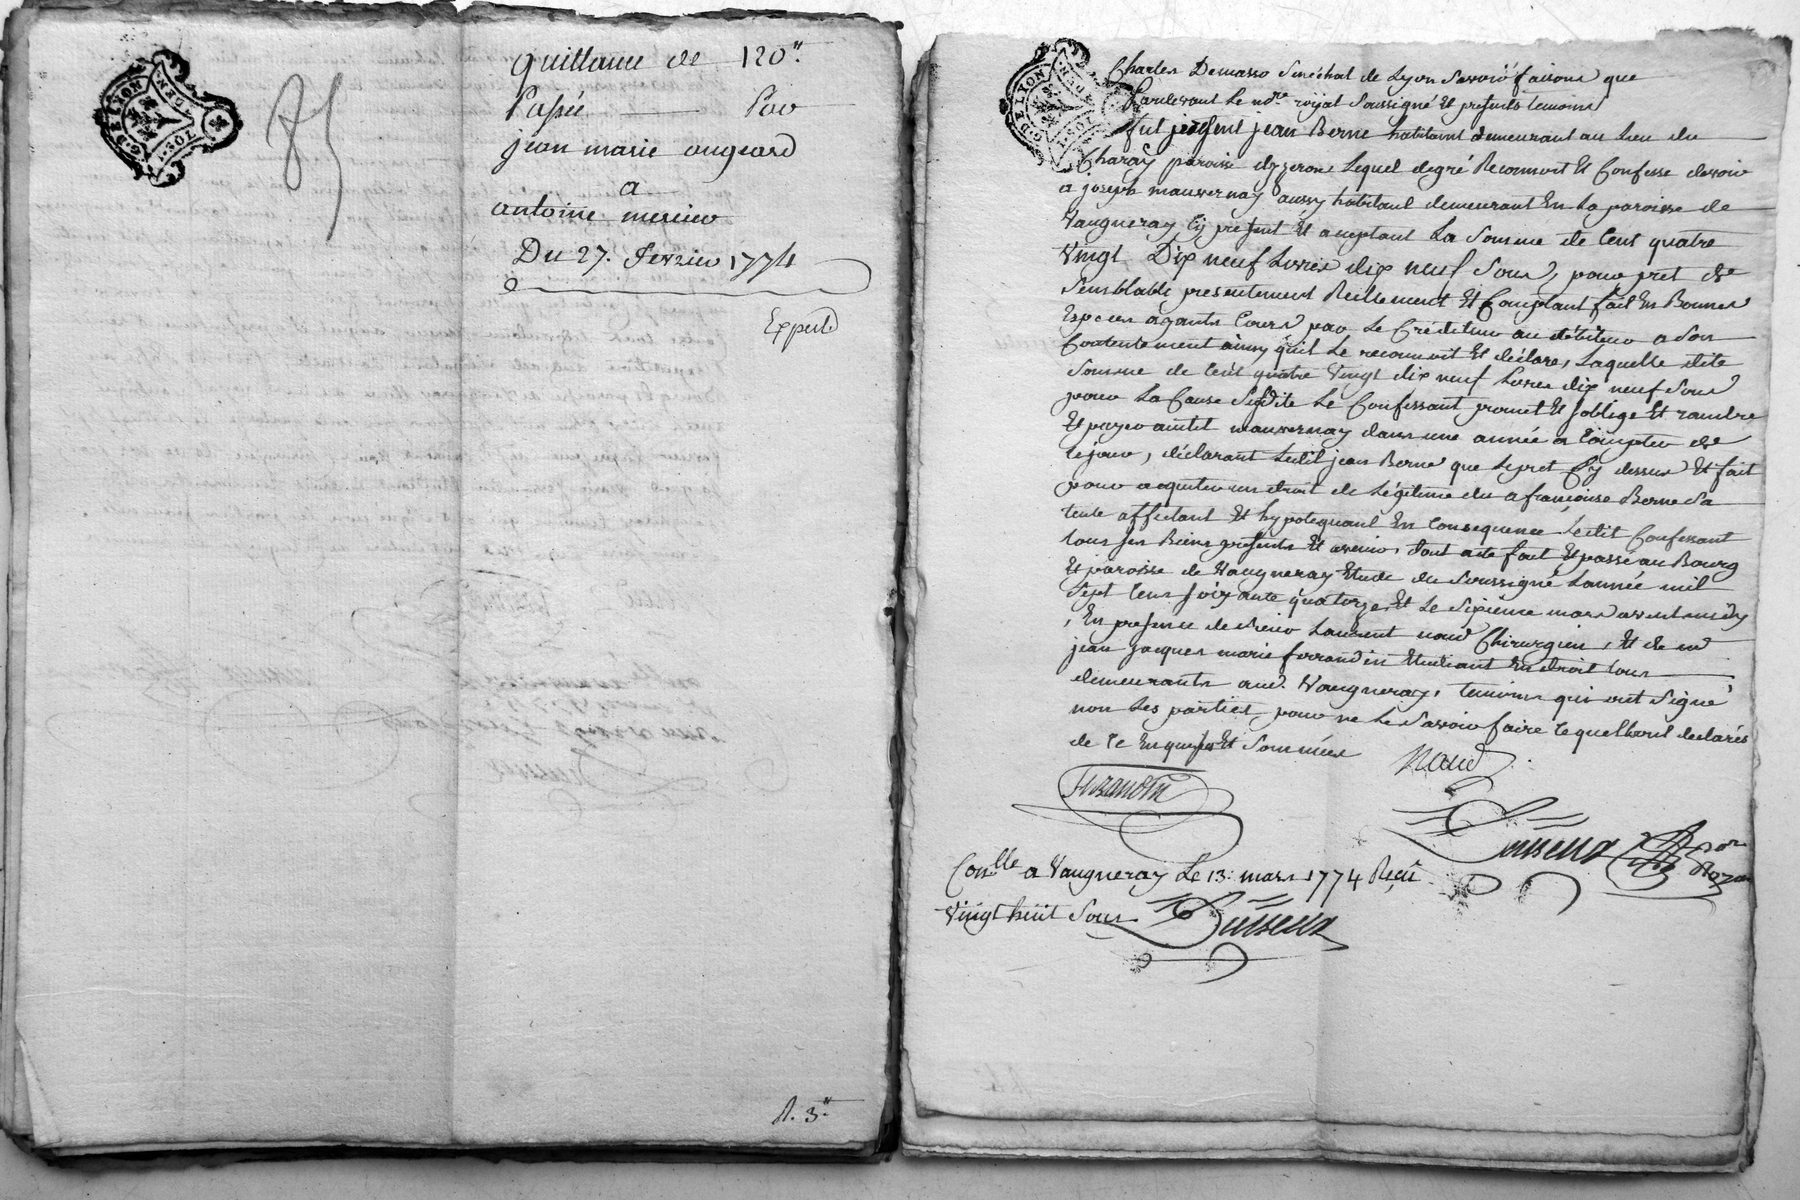 G. DE LYON
2 SOLS DEN.
85
Quittance de 120"
Passée Par
jean marie angeard
a
antoine mercier
Du 27. fevrier 1774
Expedié
R. 3"
G. DE LYON
2 SOLS DEN.
Charles Demasso Senéchal de Lyon Savoir faisons que
Pardevant le nore royal Soussigné Et presents temoins
fut present jean Berne habitant demeurant au lieu du
paroisse dyzeron lequel degré Reconnoit Et Confesse devoir
a joseph mauvernay aussy habitant demeurant En la paroisse de
Vaugneray Cy present Et aceptant La Somme de Cent quatre
Vingt Dix neuf Livres dix neuf Sous, pour pret de
Semblable presentement Reellement Et Comptant fait En Bonnes
Especes ayants Cours par Le Créditeur au débiteur a Son
Contentement ainsy quil Le reconnoit Et déclare, Laquelle dite
Somme de Cent quatre Vingt dix neuf Livres dix neuf Sous
pour La Cause Susdite Le Confessant promet Et soblige Et randre
Et payer audit mauvernay dans une année a Compter de
Cejour, déclarant Ledit jean Berne que Lepret Cy dessus Et fait
pour aquiter un droit de Légitime du a françoise Berne Sa
tente affectant Et hypotequant En Consequence Ledit Confessant
tous ses Biens presents Et avenir, Dont acte fait Et passé au Bourg
Et paroisse de Vaugneray Etude du Soussigné Lannée mil
Sept Cens soixante quatorze Et Le Sixième mars avant midy
, En presence de Sieur Laurent naud Chirurgien, Et de me
jean jacques marie ferrandin Etudiant En droit tous
demeurants aud. Vaugneray, temoins qui ont Signé
non Les parties pour ne Le Savoir faire Ce quelles ont declarés
de Ce Enquises Et Sommées
Naud
Ferrandin
Conlle a Vaugneray Le 13. mars 1774 Reçû
Vingt huit Sous